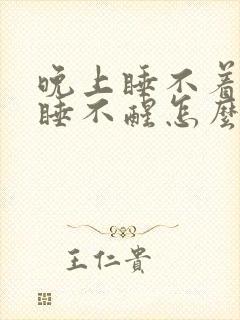 晚上睡不着
睡不醒怎麼
王仁貴